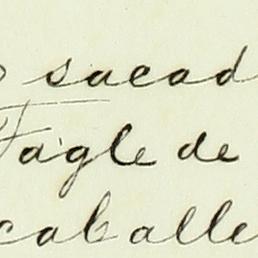 sacad
Tagle de
caballe